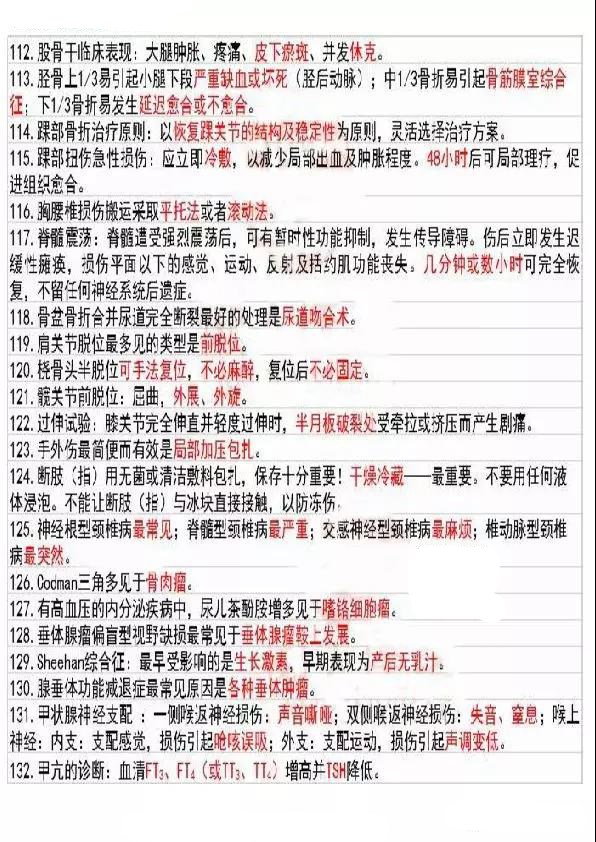 112. 股骨干临床表现: 大腿肿胀、疼痛、皮下瘀斑、并发休克。
113. 胫骨上1/3易引起小腿下段严重缺血或坏死（胫后动脉）; 中1/3骨折易引起骨筋膜室综合
征; 下1/3骨折易发生延迟愈合或不愈合。
114. 踝部骨折治疗原则: 以恢复踝关节的结构及稳定性为原则，灵活选择治疗方案。
115. 踝部扭伤急性损伤: 应立即冷敷，以减少局部出血及肿胀程度。48小时后可局部理疗，促
进组织愈合。
116. 胸腰椎损伤搬运采取平托法或者滚动法。
117. 脊髓震荡: 脊髓遭受强烈震荡后，可有暂时性功能抑制，发生传导障碍。伤后立即发生迟
缓性瘫痪，损伤平面以下的感觉、运动、反射及括约肌功能丧失。几分钟或数小时可完全恢
复，不留任何神经系统后遗症。
118. 骨盆骨折合并尿道完全断裂最好的处理是尿道吻合术。
119. 肩关节脱位最多见的类型是前脱位。
120. 桡骨头半脱位可手法复位，不必麻醉，复位后不必固定。
121. 髋关节前脱位: 屈曲，外展、外旋。
122. 过伸试验: 膝关节完全伸直并轻度过伸时，半月板破裂处受牵拉或挤压而产生剧痛。
123. 手外伤最简便而有效是局部加压包扎。
124. 断肢（指）用无菌或清洁敷料包扎，保存十分重要! 干燥冷藏——最重要。不要用任何液
体浸泡。不能让断肢（指）与冰块直接接触，以防冻伤。
125. 神经根型颈椎病最常见; 脊髓型颈椎病最严重; 交感神经型颈椎病最麻烦; 椎动脉型颈椎
病最突然。
126. Codman三角多见于骨肉瘤。
127. 有高血压的内分泌疾病中，尿儿茶酚胺增多见于嗜铬细胞瘤。
128. 垂体腺瘤偏盲型视野缺损最常见于垂体腺瘤鞍上发展。
129. Sheehan综合征: 最早受影响的是生长激素，早期表现为产后无乳汁。
130. 腺垂体功能减退症最常见原因是各种垂体肿瘤。
131. 甲状腺神经支配 : 一侧喉返神经损伤: 声音嘶哑; 双侧喉返神经损伤: 失音、窒息; 喉上
神经: 内支: 支配感觉，损伤引起呛咳误吸; 外支: 支配运动，损伤引起声调变低。
132. 甲亢的诊断: 血清FT₃、FT₄（或TT₃、TT₄）增高并TSH降低。